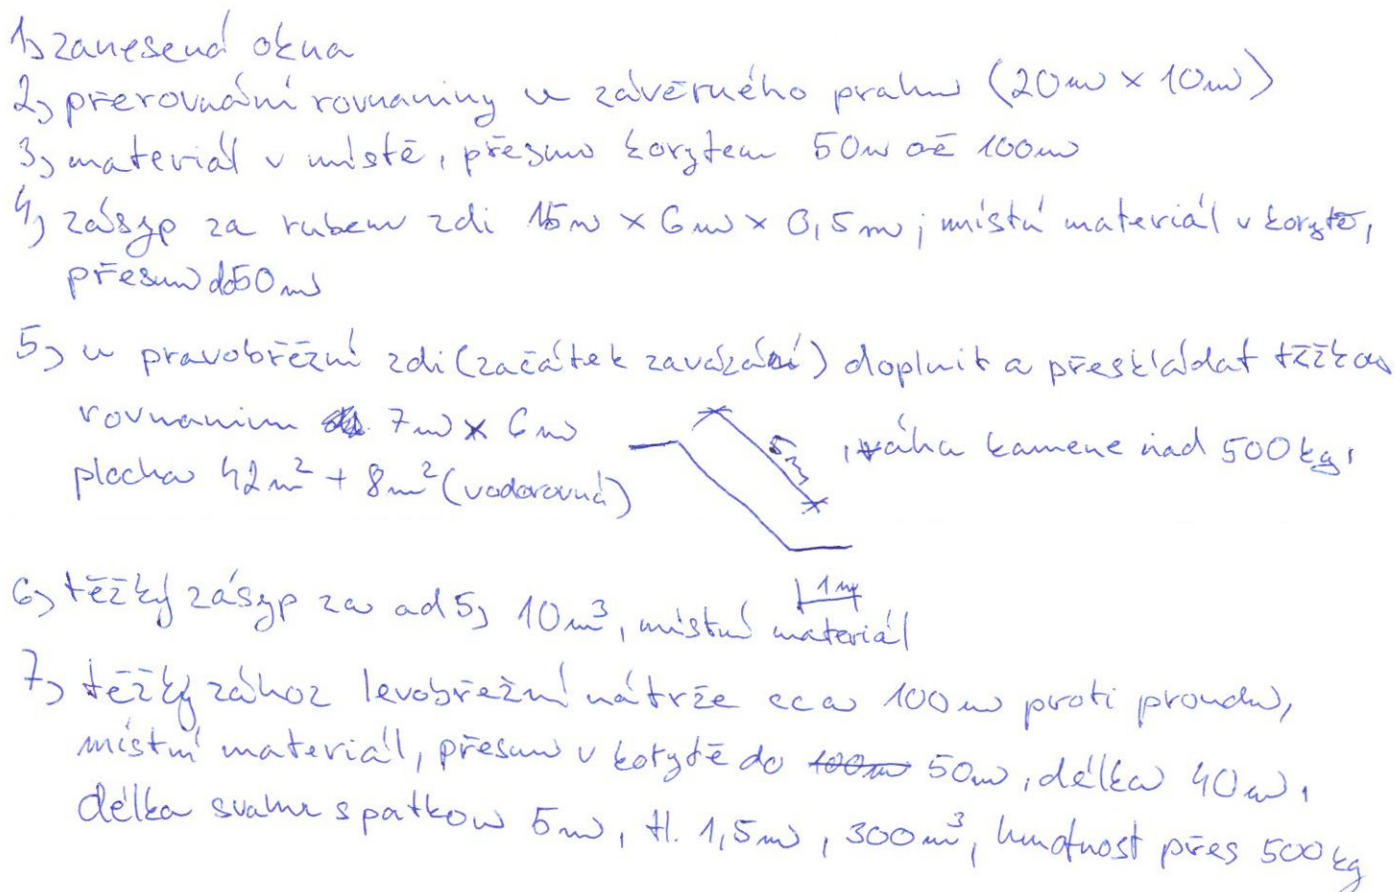 1, zanesená okna
2, přerovnání rovnaniny u závěrného prahu (20m x 10m)
3, materiál v místě, přesun korytem 50m až 100m
4, zásyp za rubem zdi 15m x 6m x 0,5m; místní materiál v korytě,
přesun do 50m
5, u pravobřežní zdi (začátek zavázání) doplnit a přeskládat těžkou
rovnaninu 7m x 6m
5m, váha kamene nad 500kg,
plocha 42m² + 8m² (vodorovná)
1m
6, těžký zásyp za ad 5, 10m³, místní materiál
7, těžký zához levobřežní nátrže cca 100m proti proudu,
místní materiál, přesun v korytě do 100m 50m, délka 40m,
délka svahu s patkou 5m, tl. 1,5m, 300m³, hmotnost přes 500kg